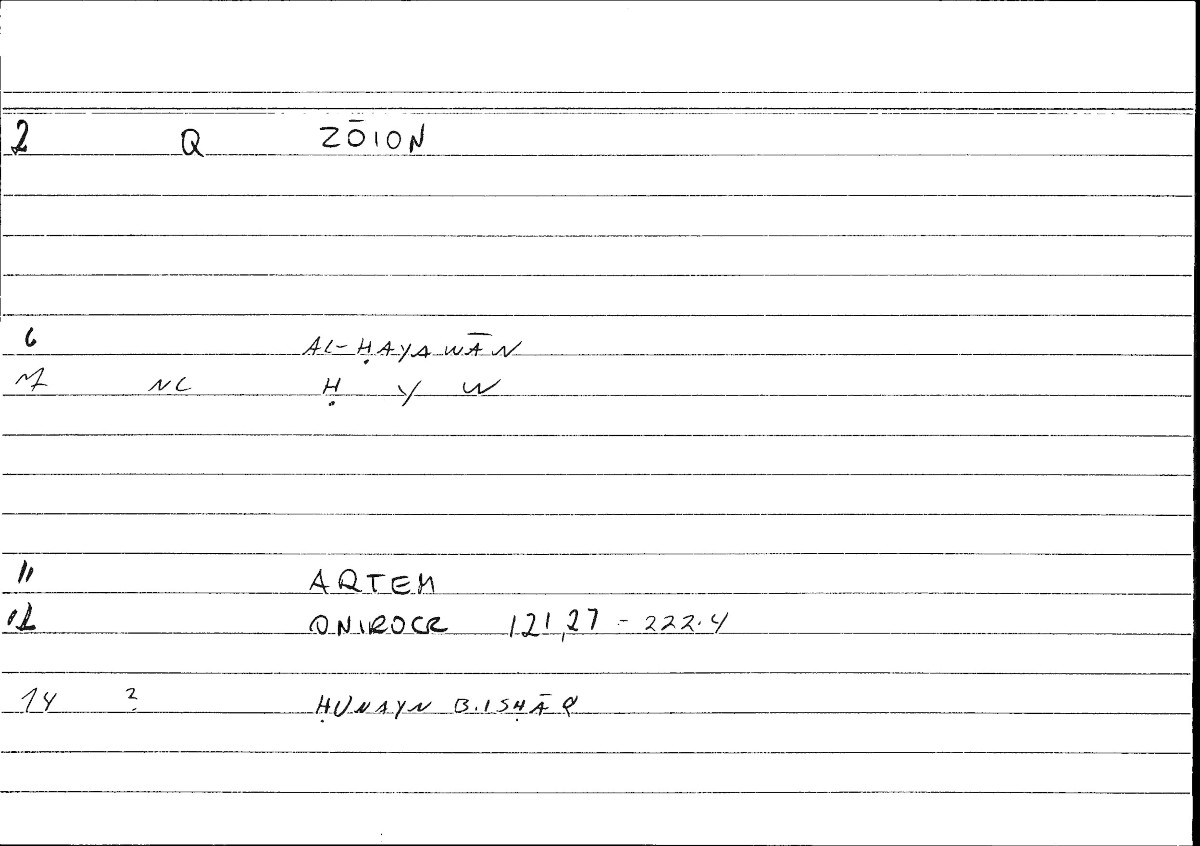 2 Q ZŌION
6 AL-ḤAYAWĀN
7 NC Ḥ Y W
11 ARTEM
12 ONIROCR 121,27 - 222.4
14 ? ḤUNAYN B.ISḤĀQ